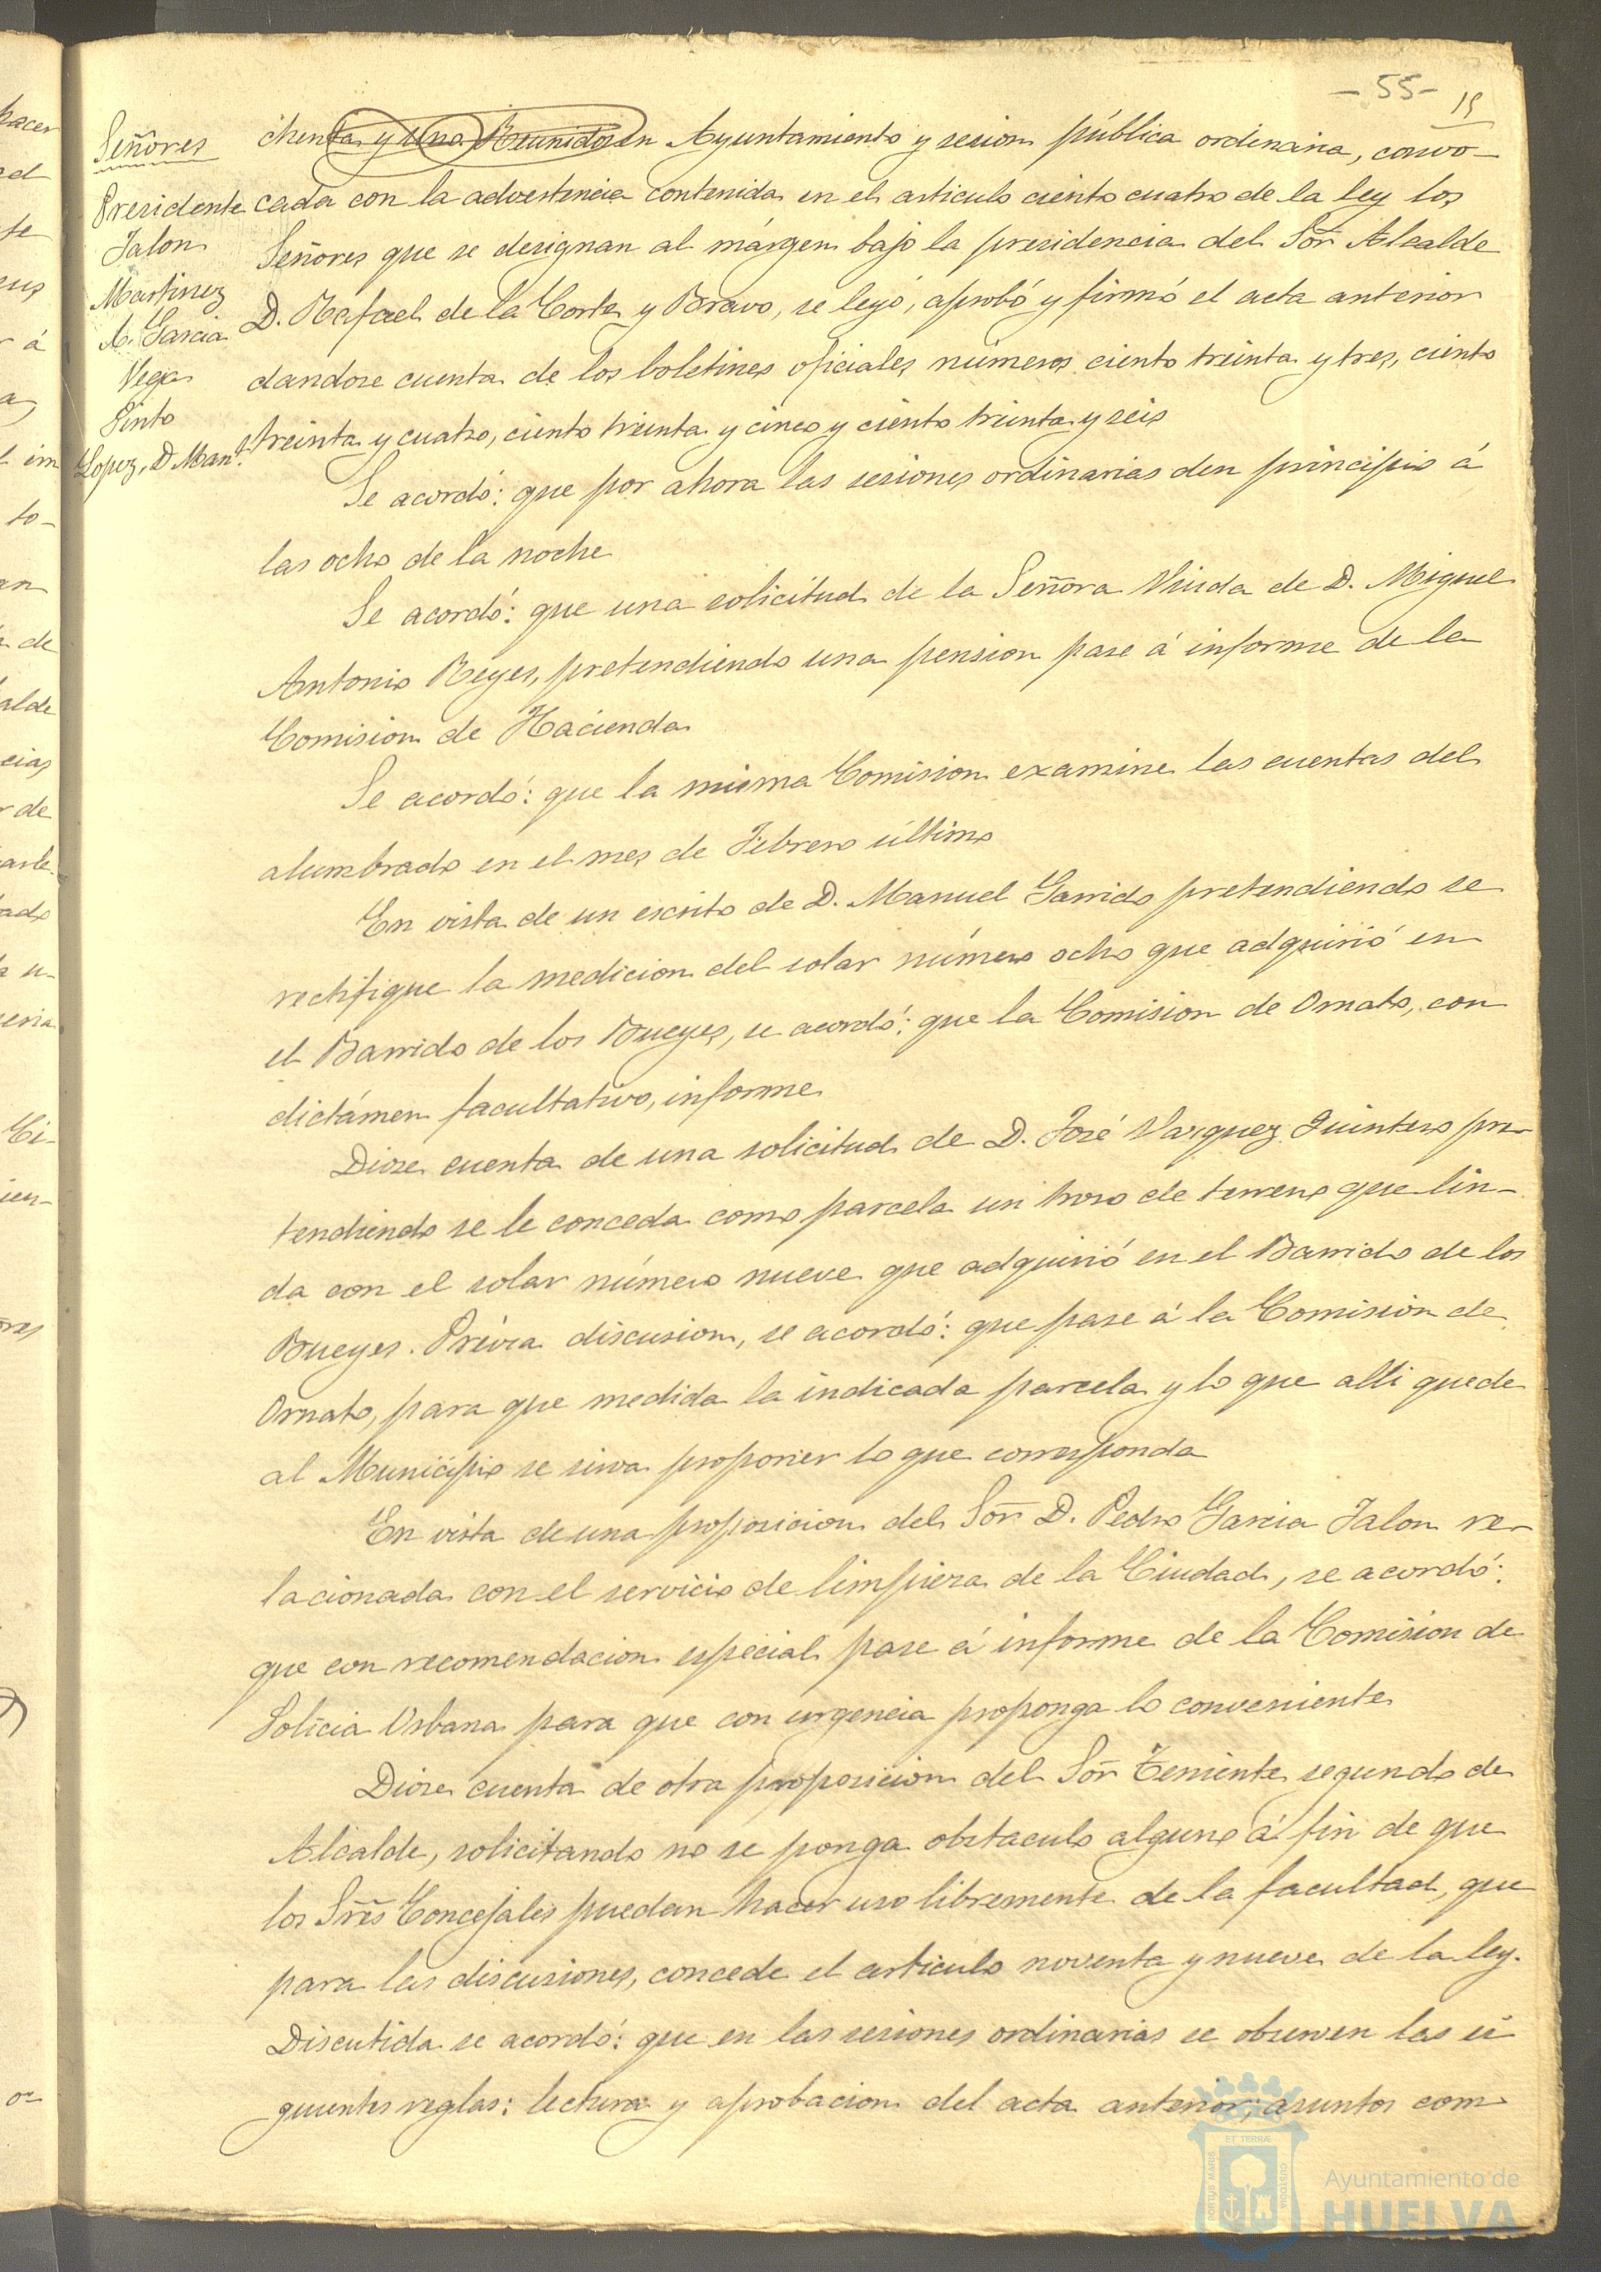 - 55 -
19
Señores
Presidente
Jalon
Martinez
A. Garcia
Vega
Pinto
Lopez, D. Man.l
chenta y una Reunidos en Ayuntamiento y sesion pública ordinaria, convo-
cada con la advertencia contenida en el articulo ciento cuatro de la ley los
Señores que se designan al márgen bajo la presidencia del Sor̃ Alcalde
D. Rafael de la Corte y Bravo, se leyó, aprobó y firmó el acta anterior
dandose cuenta de los boletines oficiales números ciento treinta y tres, ciento
treinta y cuatro, ciento treinta y cinco y ciento treinta y seis
Se acordó: que por ahora las sesiones ordinarias den principio á
las ocho de la noche
Se acordó: que una solicitud de la Señora Viuda de D. Miguel
Antonio Reyes, pretendiendo una pension pase á informe de la
Comision de Hacienda
Se acordó: que la misma Comision examine las cuentas del
alumbrado en el mes de Febrero último
En vista de un escrito de D. Manuel Garrido pretendiendo se
rectifique la medicion del solar número ocho que adquirió en
el Barrido de los Bueyes, se acordó: que la Comision de Ornato, con
dictámen facultativo, informe
Diose cuenta de una solicitud de D. José Vazquez Quintero pre-
tendiendo se le conceda como parcela un troso de terreno que lin-
da con el solar número nueve que adquirió en el Barrido de los
Bueyes. Prévia discusion, se acordó: que pase á la Comision de
Ornato, para que medida la indicada parcela y lo que alli quede
al Municipio se sirva proponer lo que corresponda
En vista de una proposicion del Sor̃ D. Pedro Garcia Jalon re-
lacionada con el servicio de limpieza de la Ciudad, se acordó:
que con recomendacion especial pase á informe de la Comision de
Policia Urbana para que con urgencia proponga lo conveniente
Diose cuenta de otra proposicion del Sor̃ Teniente segundo de
Alcalde, solicitando no se ponga obstaculo alguno á fin de que
los Sres̃ Concejales puedan hacer uso libremente de la facultad, que
para las discusiones, concede el articulo noventa y nueve de la ley.
Discutida se acordó: que en las sesiones ordinarias se observen las si
guientes reglas: lectura y aprobacion del acta anterior; asuntos com-
Ayuntamiento de
HUELVA